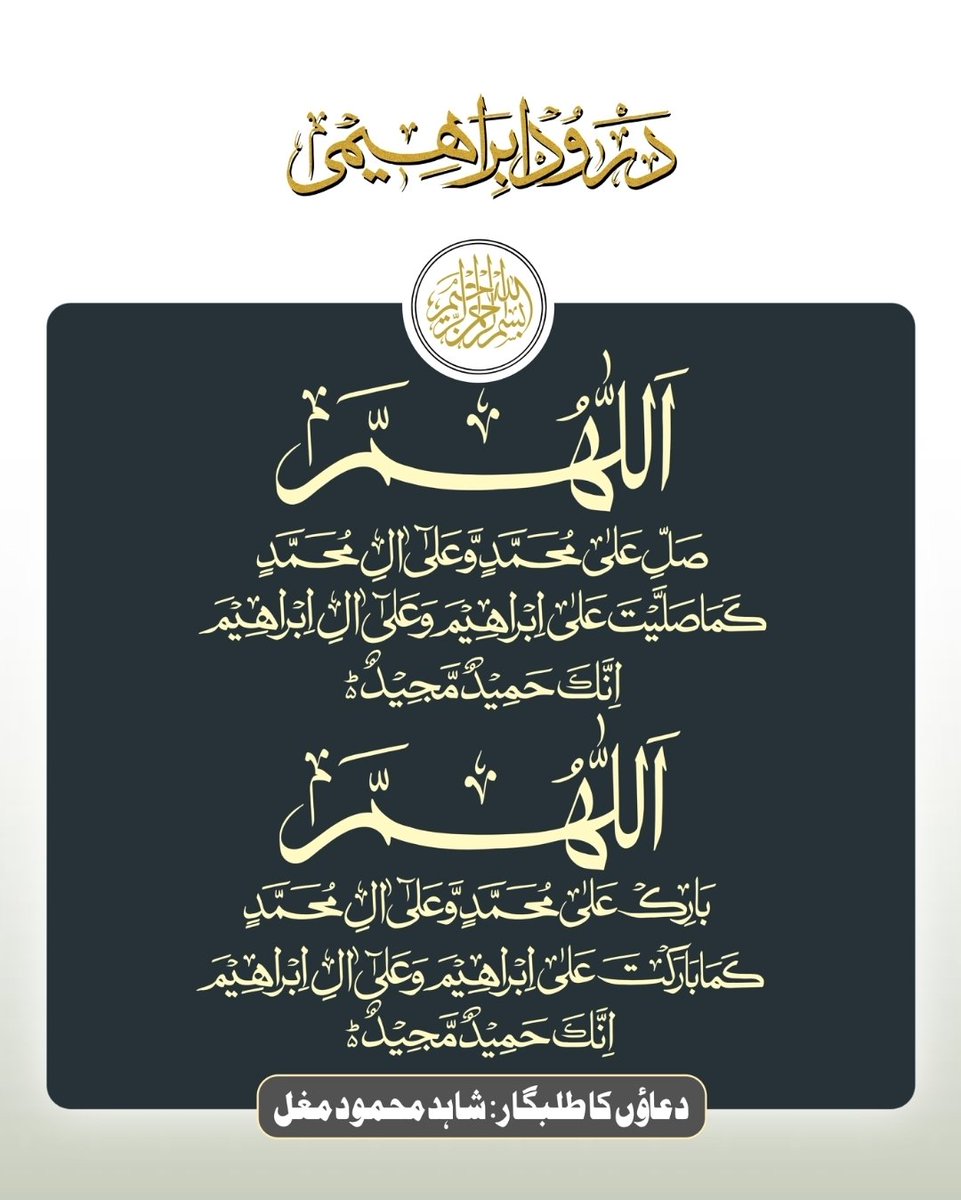 دُرُود اِبراهیمی
بسم الله الرحمن الرحيم
اَللّٰهُمَّ
صَلِّ عَلٰی مُحَمَّدٍ وَّعَلٰٓی اٰلِ مُحَمَّدٍ
کَمَا صَلَّیْتَ عَلٰٓی اِبْرَاهِیْمَ وَعَلٰٓی اٰلِ اِبْرَاهِیْمَ
اِنَّکَ حَمِیْدٌ مَّجِیْدٌ ؕ
اَللّٰهُمَّ
بَارِکْ عَلٰی مُحَمَّدٍ وَّعَلٰٓی اٰلِ مُحَمَّدٍ
کَمَا بَارَکْتَ عَلٰٓی اِبْرَاهِیْمَ وَعَلٰٓی اٰلِ اِبْرَاهِیْمَ
اِنَّکَ حَمِیْدٌ مَّجِیْدٌ ؕ
دعاؤں کا طلبگار: شاہد محمود مغل